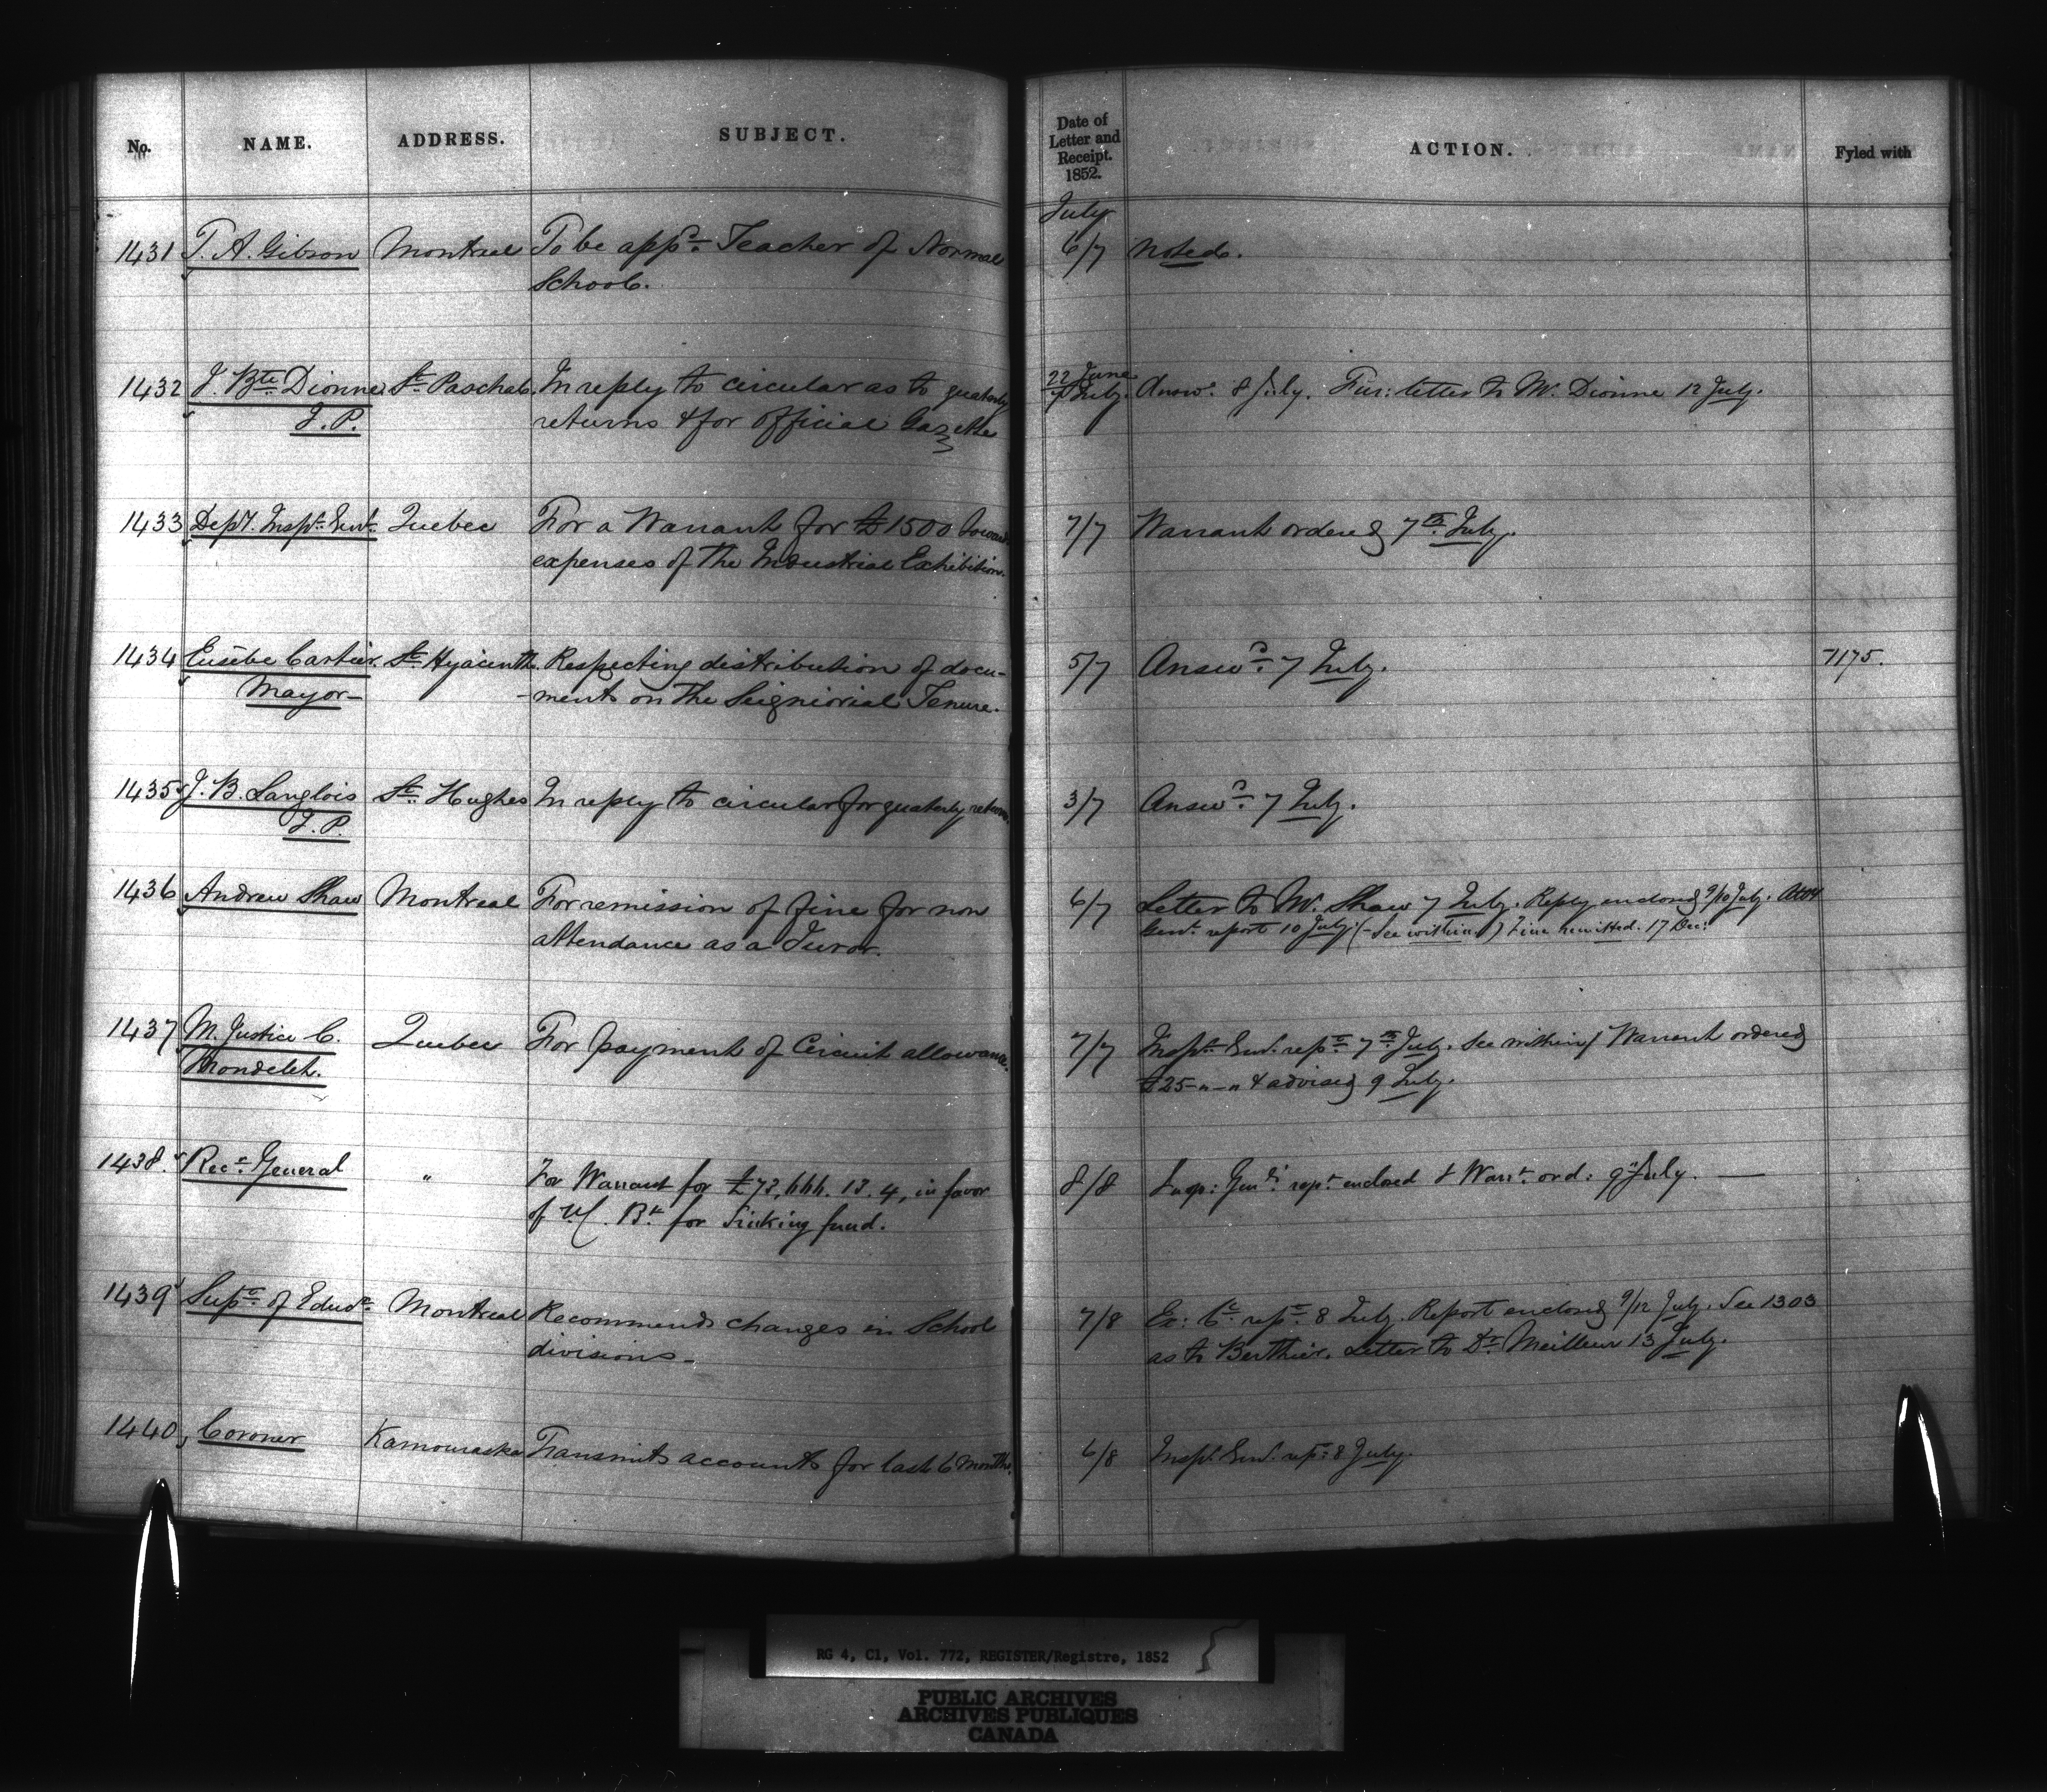 No. NAME. ADDRESS. SUBJECT. Date of Letter and Receipt. 1852. ACTION. Fyled with
July
1431 T. A. Gibson Montreal To be appd. Teacher of Normal 6/7 Noted.
School.
1432 J. Bte Dionne St Paschal. In reply to circular as to quaterly 22 June 7 July. Answd 8 July. Fur: letter to Mr. Dionne 12 July.
J. P. returns & for official Gazette
1433 Depy. Inspr. Genl. Quebec For a Warrant for £1500 toward 7/7 Warrant ordered 7th July.
expenses of the Industrial Exhibition.
1434 Eusèbe Cartier St Hyacinth. Respecting distribution of docu- 5/7 Answd. 7 July. 7175.
Mayor -ments on the Seigniorial Tenure.
1435 J. B. Langlois St. Hughes In reply to circular for quaterly return. 3/7 Answd. 7 July.
J. P.
1436 Andrew Shaw Montreal For remission of fine for non 6/7 Letter to Mr. Shaw 7 July. Reply enclosed 9/10 July. Atty
attendance as a Juror. Genl. report 10 July. (-See within) Fine remitted. 17 Dec:
1437 Mr. Justice C. Quebec For payment of Circuit allowance. 7/7 Inspr. Genl. repd. 7th July. See within/ Warrant ordered
Mondelet. £25-"-" & advised 9 July.
1438. Recr. General " For Warrant for £73,666. 13. 4, in favor 8/8 Insp: Genls. rept. enclosed & Warrt. ord: 9" July.
of U.C. Bk for Sinking fund.
1439 Supt. of Educn. Montreal Recommends changes in School 7/8 Ex: Cl. rept. 8 July. Report enclosed 9/12 July. See 1303
divisions as to Berthier. Letter to Dr. Meilleur 13 July.
1440 Coroner Kamouraska Transmits accounts for last 6 months. 6/8 Inspr. Genl. repd. 8 July.
RG 4, C1, Vol. 772, REGISTER/Registre, 1852
PUBLIC ARCHIVES
ARCHIVES PUBLIQUES
CANADA